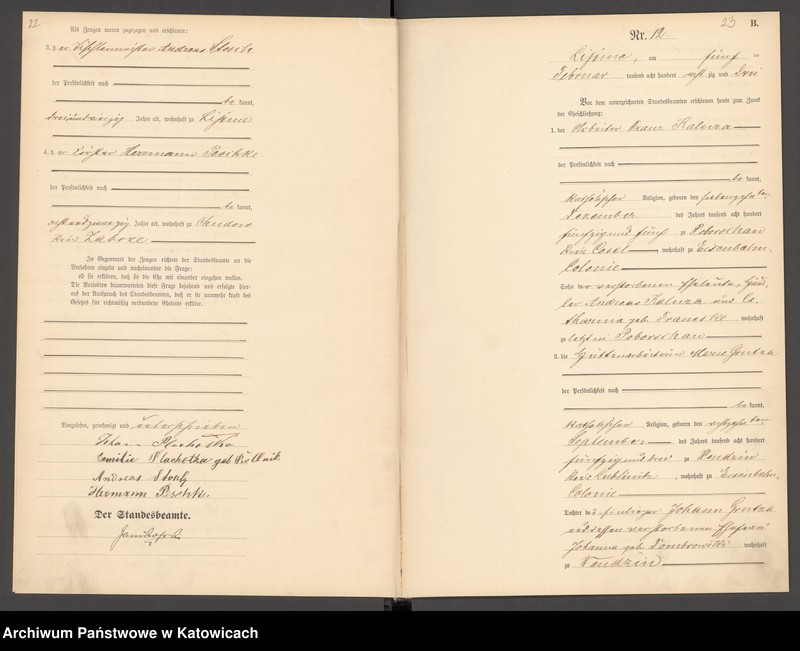 22
Als Zeugen waren zugezogen und erschienen:
3. der Andreas
der Persönlichkeit nach
be kannt,
dreiundvierzig Jahre alt, wohnhaft zu Lipine
4. der Hermann
der Persönlichkeit nach
be kannt,
Jahre alt, wohnhaft zu
Kreis Zabrze
In Gegenwart der Zeugen richtete der Standesbeamte an die
Verlobten einzeln und nacheinander die Frage:
ob sie erklären, daß sie die Ehe mit einander eingehen wollen.
Die Verlobten beantworteten diese Frage bejahend und erfolgte hier-
auf der Ausspruch des Standesbeamten, daß er sie nunmehr kraft des
Gesetzes für rechtmäßig verbundene Eheleute erkläre.
Vorgelesen, genehmigt und unterschrieben
Johann
Emilie Machetka geb
Andreas
Hermann
Der Standesbeamte.
23
B.
Nr. 12.
Lipine, am fünf en
Februar tausend acht hundert acht zig und drei
Vor dem unterzeichneten Standesbeamten erschienen heute zum Zweck
der Eheschließung:
1. der Arbeiter Franz Kaluza
der Persönlichkeit nach
be kannt,
katholischer Religion, geboren den siebenzehnten
Dezember des Jahres tausend acht hundert
fünfzig und fünf zu Poborschau
Kreis Cosel, wohnhaft zu Eisenbahn-
Colonie
Sohn der verstorbenen Eheleute, Häus-
ler Andreas Kaluza und Ca-
tharina geb. wohnhaft
zuletzt in Poborschau
2. die Hüttenarbeiterin Marie
der Persönlichkeit nach
be kannt,
katholischer Religion, geboren den achtzehnten
September des Jahres tausend acht hundert
fünfzig und drei zu Wendzin
Kreis Lublinitz, wohnhaft zu Eisenbahn-
Colonie
Tochter des Johann
und dessen verstorbenen Ehefrau
Johanna geb. Dombrowski wohnhaft
zu Wendzin
Archiwum Państwowe w Katowicach